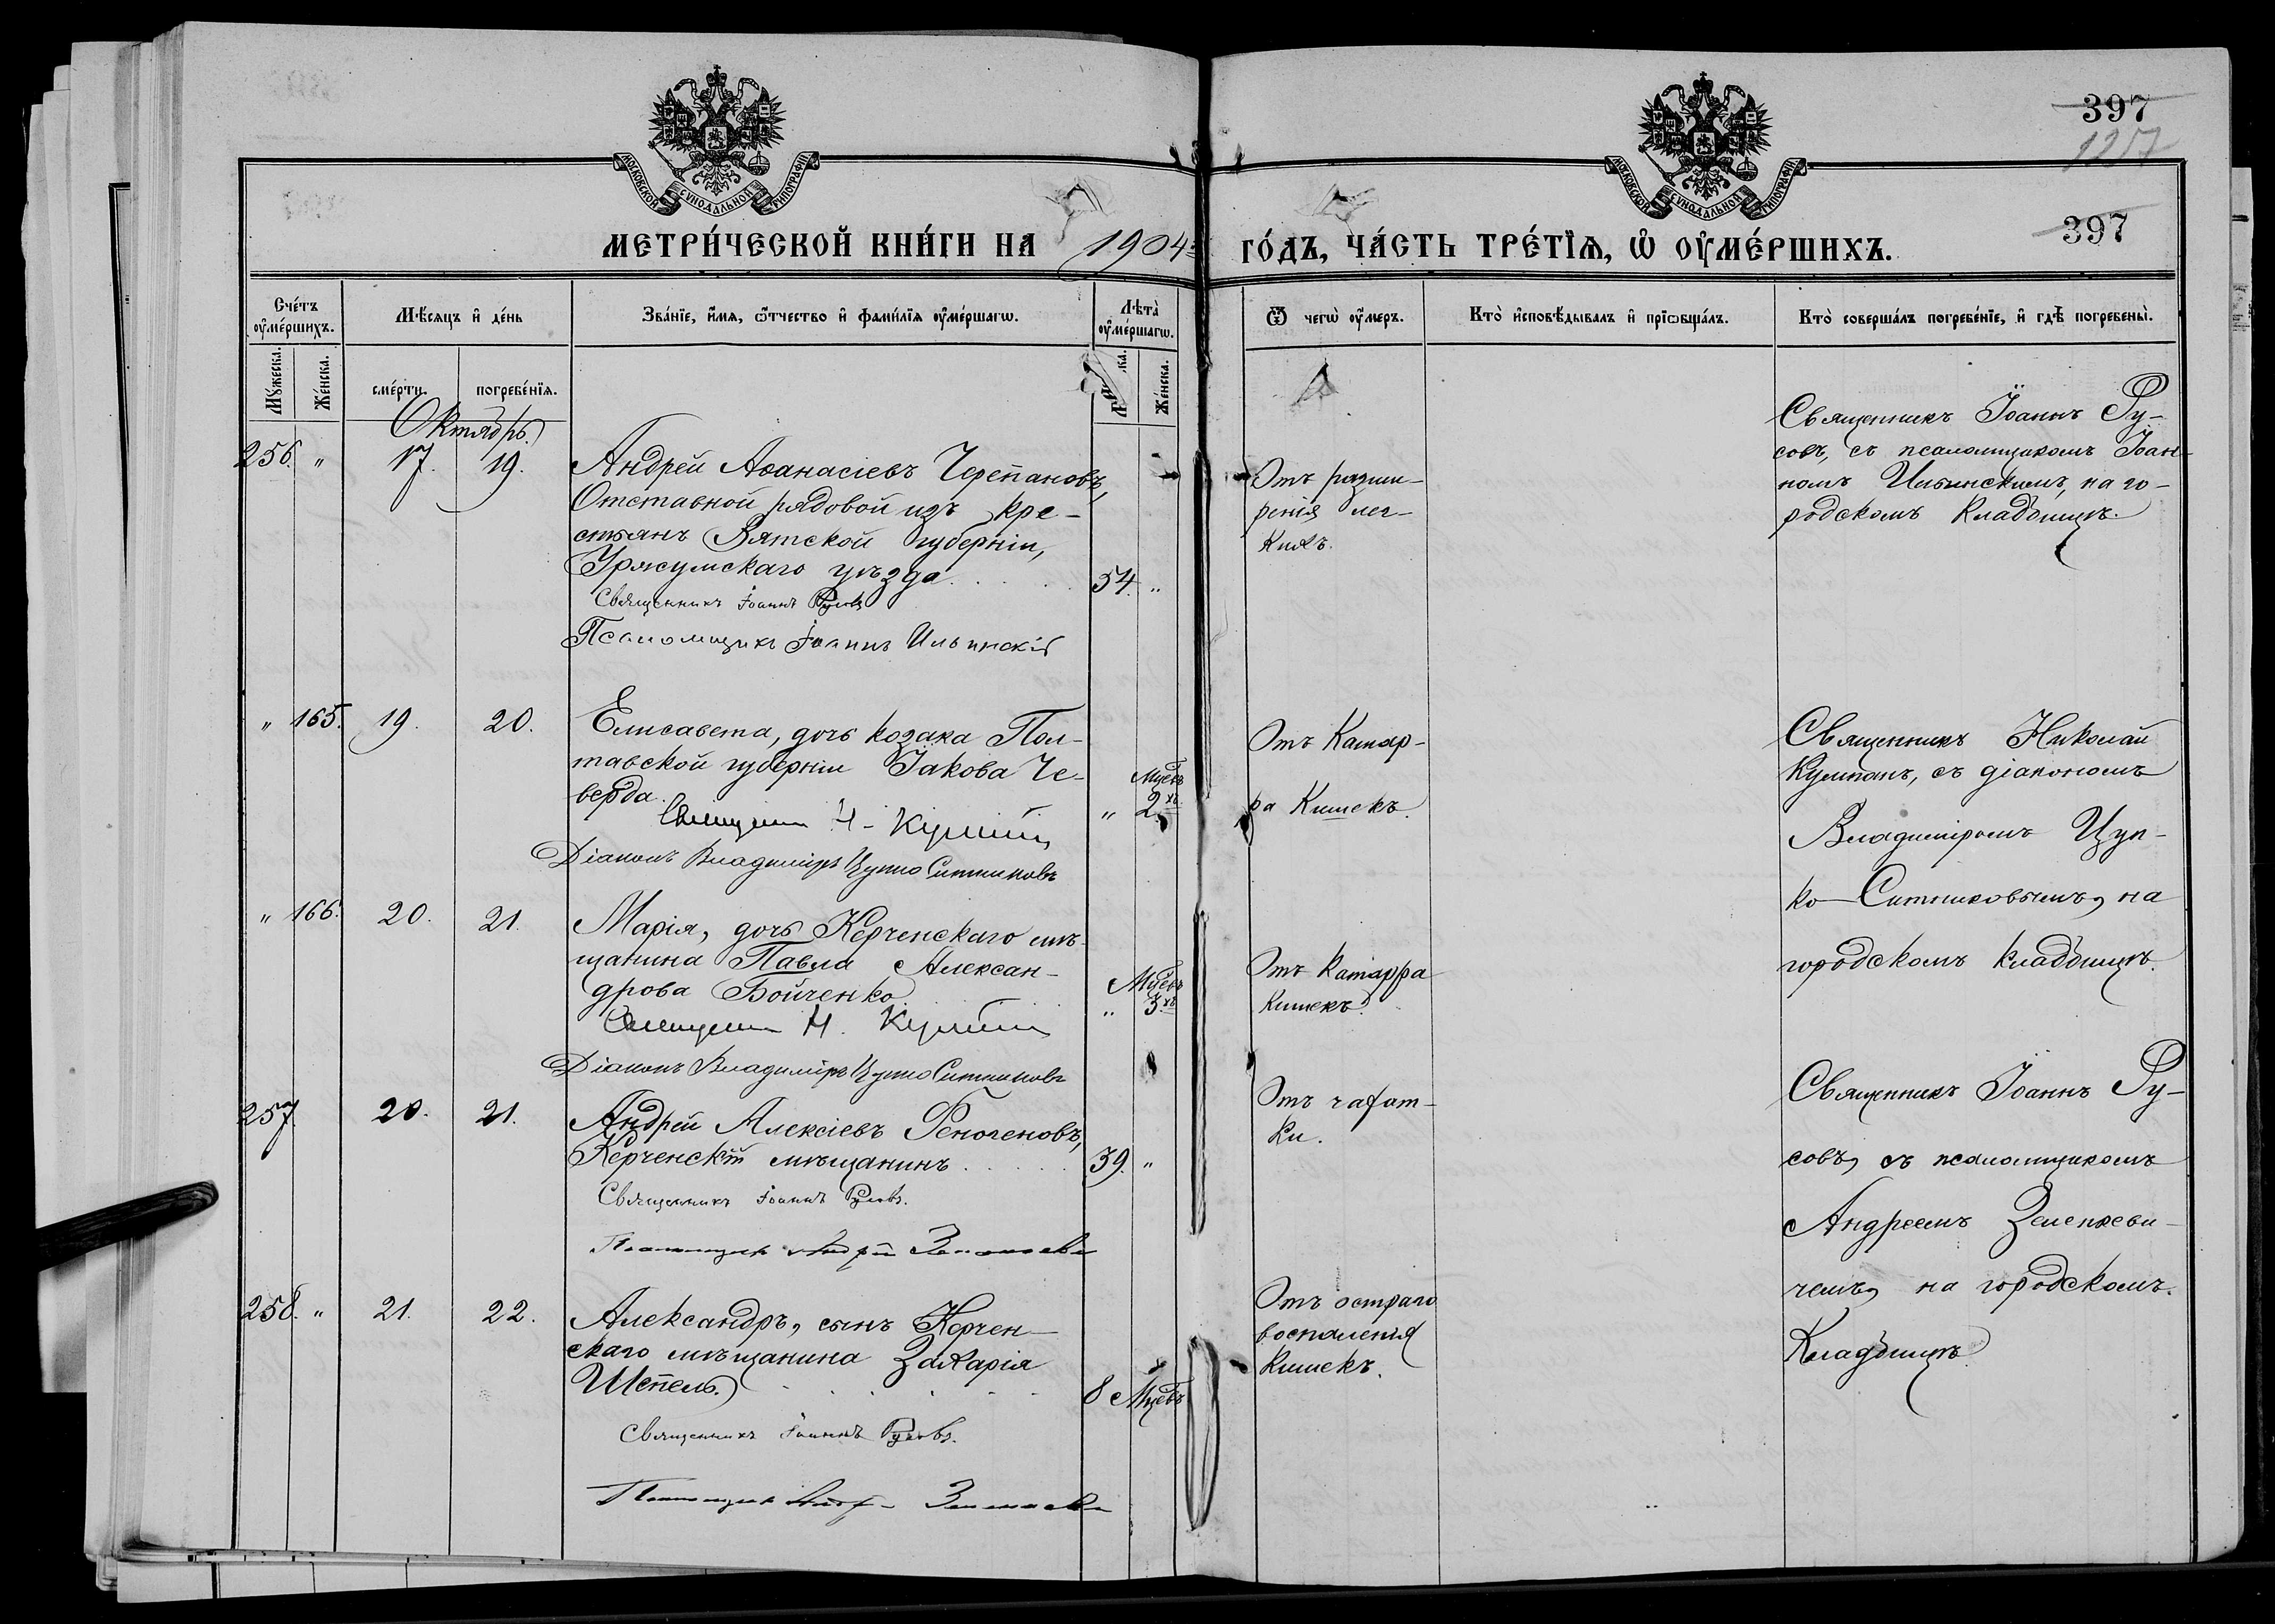 397
1257
МОСКОВСКОЙ СѴНОДАЛЬНОЙ ТИПОГРАФІИ
МОСКОВСКОЙ СѴНОДАЛЬНОЙ ТИПОГРАФІИ
МЕТРИ́ЧЕСКОЙ КНИ́ГИ НА 1904 ГО́ДЪ, ЧА́СТЬ ТРЕ́ТІѦ, Ѡ ОУМЕ́РШИХЪ.
397
Сче́тъ оуме́ршихъ.
Мꙋ́жеска.
Же́нска.
Мѣ́сяцъ и де́нь
сме́рти.
погребе́нїѧ.
Зва́нїе, и́мѧ, ѻ҆́тчество и фами́лїѧ оуме́ршагѡ.
Лѣта̀ оуме́ршагѡ.
Же́нска.
Ѿ чегѡ̀ оу́меръ.
Кто̀ исповѣ́дывалъ и прїѡбща́лъ.
Кто̀ соверша́лъ погребе́нїе, и гдѣ̀ погребены̀.
Октябрь.
256. " 17. 19.
Андрей Аѳанасіевъ Черепановъ,
Отставной рядовой изъ кре-
стьянъ Вятской губерніи,
Уржумскаго уѣзда . . . . 54. "
Священникъ Іоаннъ Русовъ
Псаломщикъ Іоаннъ Ильинскій
Отъ разши-
ренія лег-
кихъ.
Священникъ Іоаннъ Ру-
совъ, съ псаломщикомъ Іоан-
номъ Ильинскимъ, на го-
родскомъ кладбищѣ.
" 165. 19. 20.
Елисавета, дочь козака Пол-
тавской губерніи Іакова Че-
верда.
" Мцевъ 2хъ
Священникъ Н. Кулпинъ
Діаконъ Владиміръ Цупко Ситниковъ
Отъ Катар-
ра Кишекъ.
Священникъ Николай
съ діакономъ
Владиміромъ Цуп-
ко-Ситниковымъ, на
городскомъ кладбищѣ.
" 166. 20. 21.
Марія, дочь Керченскаго мѣ-
щанина Павла Алексан-
дрова Бойченко.
" Мцевъ 3хъ
Священникъ Н.
Діаконъ Владиміръ Цупко Ситниковъ
Отъ Катарра
Кишекъ.
257. 20. 21.
Андрей Алексіевъ
Керченскій мѣщанинъ . . . . . 39. "
Священникъ Іоаннъ Русовъ.
Псаломщикъ Андрей Зеленкевичъ
Отъ чахот-
ки.
Священникъ Іоаннъ Ру-
совъ, съ псаломщикомъ
Андреемъ Зеленкеви-
чемъ, на городскомъ
Кладбищѣ.
258. " 21. 22.
Александръ, сынъ Керчен-
скаго мѣщанина Захарія
Шепель. . . . . . 8 Мцевъ
Священникъ Іоаннъ Русовъ.
Псаломщикъ Андрей Зеленкевичъ
Отъ остраго
воспаленія
Кишекъ.